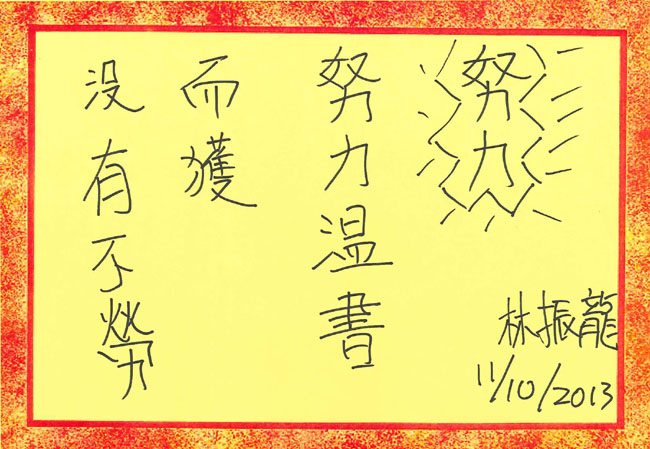 没有不勞
而獲
努力温書
努力
林振龍
11/10/2013